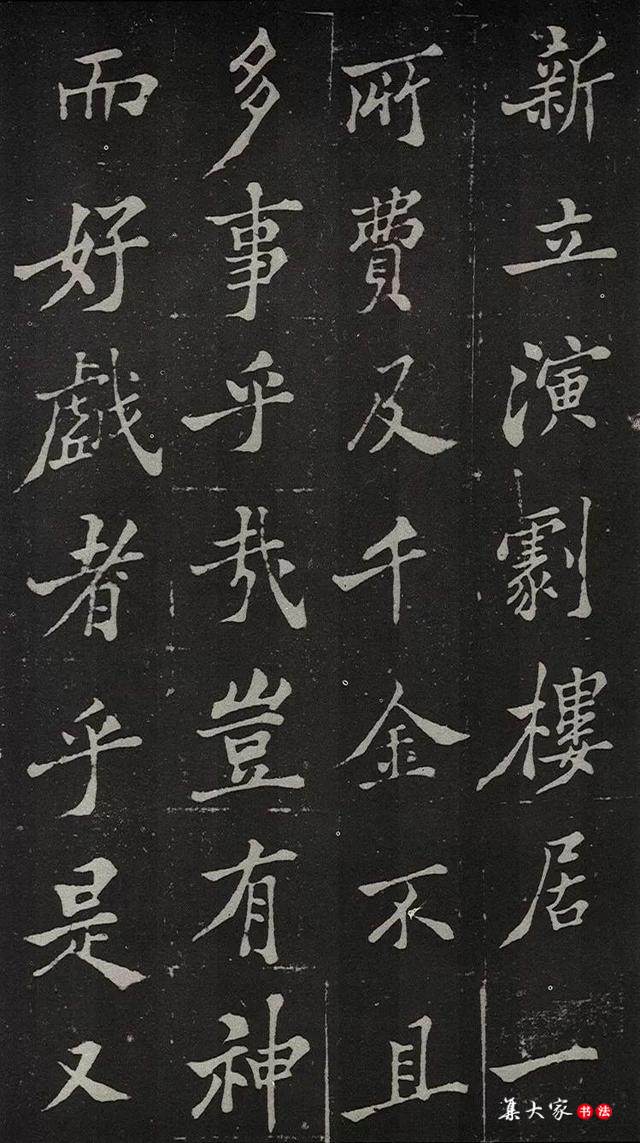 新立演劇樓居一
所費及千金不且
多事乎哉豈有神
而好戲者乎是又
集大家书法